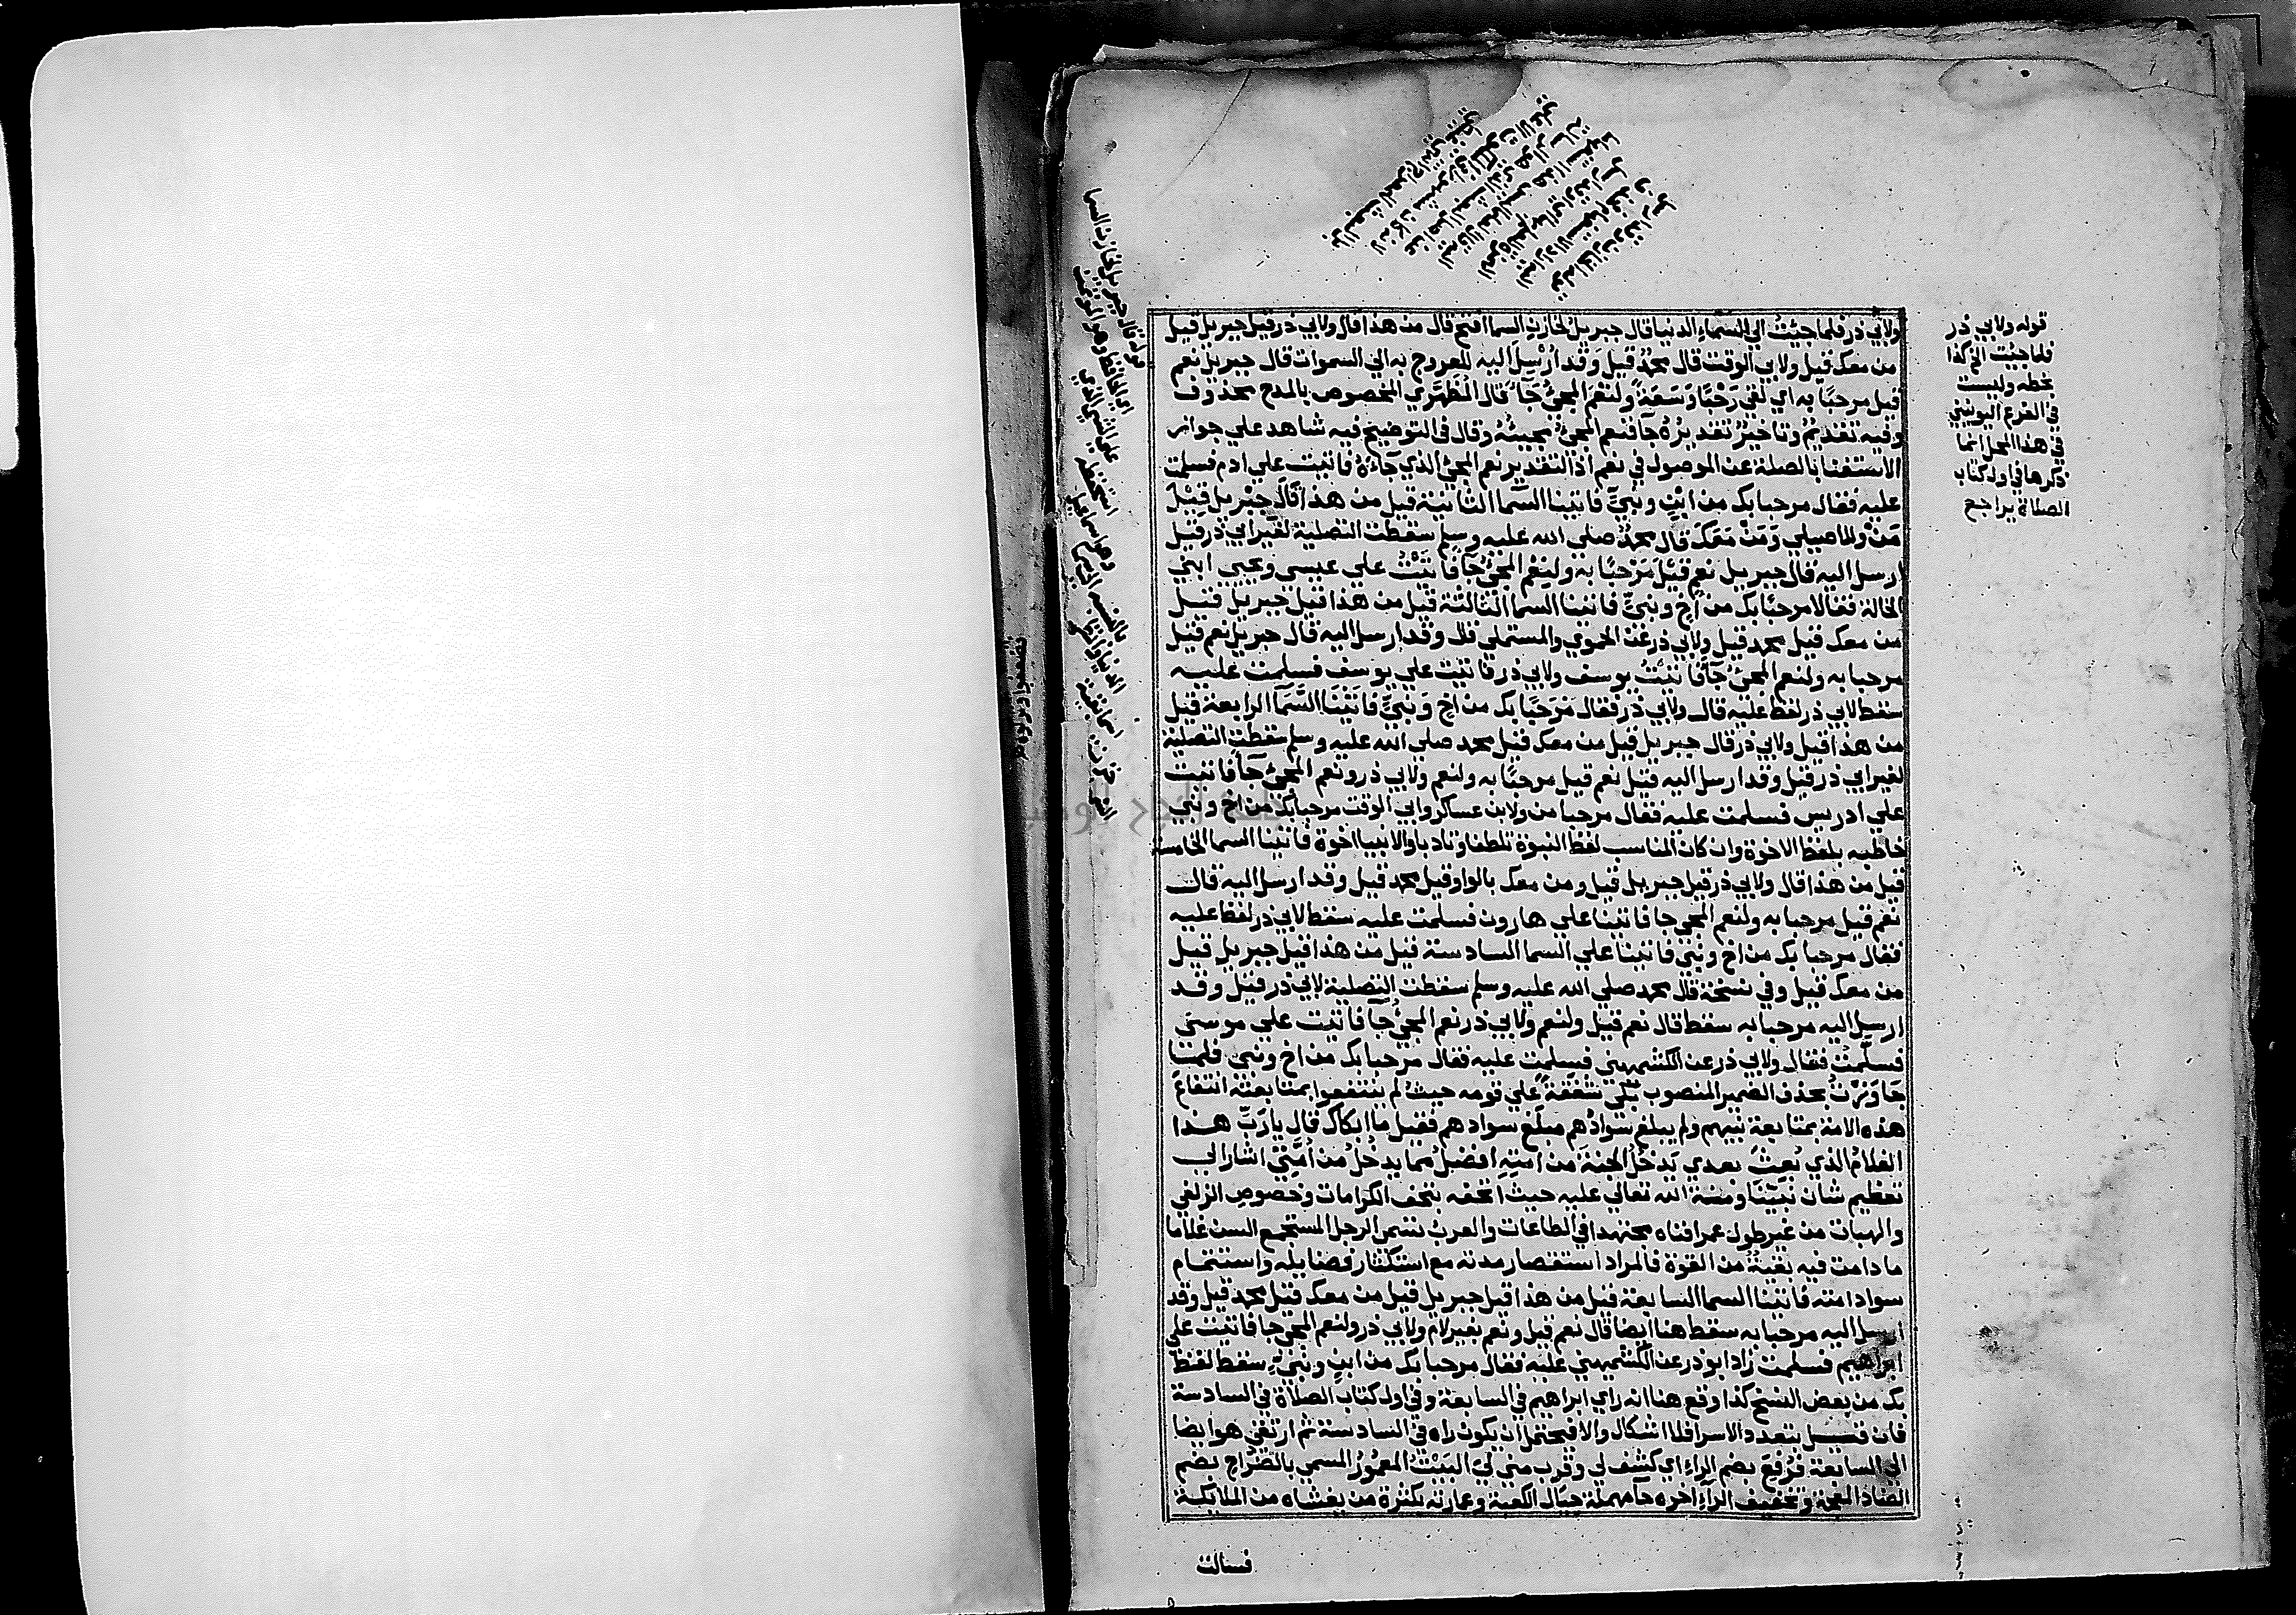 ولابي ذر فلما جئتُ الي السماء الدنيا قال جبريل لخازن السما افتح قال من هذا قال ولابي ذر قيل جبريل قيل
من معك قيل ولابي الوقت قال محمد قيل وقد ارسل اليه للعروج به الي السموات قال جبريل نعم
قيل مرحبًا به اي لقي رحْبًا وسَعَةً ولنعم المجئُ جَاءَ قال المظهري المخصوص بالمدح محذوف
وفيه تقديمٌ وتاخيرٌ تقديرُه جآ فنعم المجئُ مجيئُهُ وقال في التوضيح فيه شاهد علي جواز
الاستغنا بالصلة عن الموصول في نعم اذ التقدير نعم المجئ الذي جآءَهُ فاتيت علي ادم فسلمت
عليه فقال مرحبا بك من ابنٍ ونبيٍّ فاتينا السمآ الثانية قيل من هذا قال جبريل قيل
مَنْ وللاصيلي وَمَنْ مَعَكَ قال محمد صلي الله عليه وسلم سقطت التصلية لغير ابي ذر قيل
ارسل اليه قال جبريل نعم قيل مرحبًا به ولنعم المجئُ جآ فاتيتُ علي عيسى ويحيي ابني
الخالة فقالا مرحبًا بك من اخٍ ونبيٍّ فاتينا السما الثالثة قيل من هذا قيل جبريل قيل
من معك قيل محمد قيل ولابي ذر عن الحموي والمستملي قال وقد ارسل اليه قال جبريل نعم قيل
مرحبا به ولنعم المجئُ جآ فاتيتُ يوسف ولابي ذر فاتيت علي يوسف فسلمت عليه
سقط لابي ذر لفظ عليه قال ولابي ذر فقال مرحبًا بك من اخٍ ونبيٍّ فاتينا السَّمآ الرابعة قيل
من هذا قيل ولابي ذر قال جبريل قيل من معك قيل محمد صلي الله عليه وسلم سقطت التصلية
لغير ابي ذر قيل وقد ارسل اليه قيل نعم قيل مرحبًا به ولنعم ولابي ذر ونعم المجئُ جآ فاتيت
علي ادريس فسلمت عليه فقال مرحبا من ولابن عساكر وابي الوقت مرحبا بك من اخ ونبي
خاطبه بلفظ الاخوة وان كان المناسب لفظ النبوة تلطفا وتادبا والانبيا اخوة فاتينا السما الخامسة
قيل من هذا قال ولابي ذر قيل جبريل قيل ومن معك بالواو قيل محمد قيل وقد ارسل اليه قال
نعم قيل مرحبا به ولنعم المجي جا فاتينا علي هارون فسلمت عليه سقط لابي ذر لفظ عليه
فقال مرحبا بك من اخ ونبي فاتينا علي السما السادسة قيل من هذا قيل جبريل قيل
من معك قيل وفي نسخة قال محمد صلي الله عليه وسلم سقطت التصلية لابي ذر قيل وقد
ارسل اليه مرحبا به سقط قال نعم قيل ولنعم ولابي ذر نعم المجئُ جا فاتيت علي موسي
فسلمت فقال ولابي ذر عن الكشميهني فسلمت عليه فقال مرحبا بك من اخ ونبي فلمّا
جاوزتُ بحذف الضمير المنصوب بَكَى شفقةً علي قومه حيث لم ينتفعوا بمتابعته انتفاعَ
هذه الامة بمتابعة نبيهم ولم يبلغ سوادُهم مبلغ سوادهم فقيل ما ابكاك قال يا ربِّ هذا
الغلامُ الذي بُعِثَ بعدي يَدخُلُ الجنة من امتِهِ افضلُ مما يدخلُ من اُمّتي اشار الي
تعظيم شان نبيّنا ومنّة الله تعالي عليه حيث اتحفه بتحف الكرامات وخصوص الزلفي
والهبات من غير طول عمر افناه مجتهدا في الطاعات والعرب تسمي الرجل المستجمع السن غلاما
ما دامت فيه بقيةٌ من القوة فالمراد استقصار مدته مع استكثار فضايله واستتمام
سواد امته فاتينا السما السابعة قيل من هذا قيل جبريل قيل من معك قيل محمد قيل وقد
ارسل اليه مرحبا به سقط هنا ايضا قال نعم قيل ونعم بغير لام ولابي ذر ولنعم المجي جا فاتيت علي
ابراهيم فسلمت زاد ابو ذر عن الكشميهني عليه فقال مرحبا بك من ابنٍ ونبيٍّ سقط لفظ
بك من بعض النسخ كذا وقع هنا انه راي ابراهيم في السابعة وفي اول كتاب الصلاة في السادسة
فان قيل بتعدد الاسرا فلا اشكال والا فيحتمل ان يكون راه في السادسة ثم ارتقي هو ايضا
الي السابعة فرُفعَ بضم الراء اي كشف لي وقرب مني ليَ البَيْتُ المعمورُ المسمي بالضُّراح بضم
الضاد المعجمة وتخفيف الرآء اخره حآ مهملة حيال الكعبة وعمارته بكثرة من يغشاه من الملايكة
فسالت
قوله ولابي ذر
فلما جئت الخ كذا
بخطه وليست
في الفرع اليونيني
في هذا المحل انما
ذكرها في اول كتاب
الصلاة يراجع